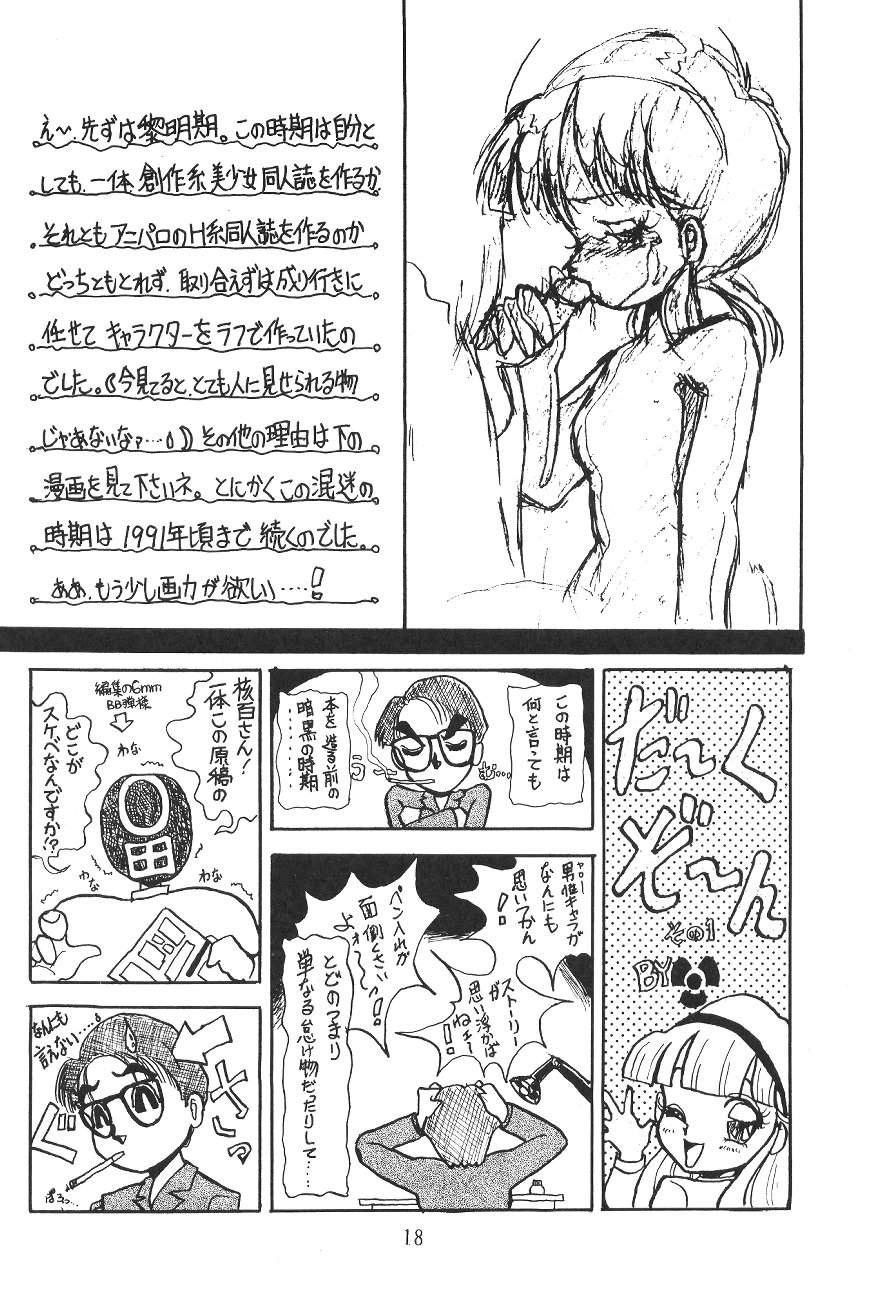 え〜、先ずは黎明期。この時期は自分と
しても、一体 創作系美少女同人誌を作るか
それともアニパロのH系同人誌を作るのか
どっちともとれず、取り合えずは成り行きに
任せて キャラクターをラフで作っていたの
でした。(今見てると、とても人に見せられる物
じゃあないなァ…) その他の理由は下の
漫画を見て下さいネ。とにかくこの混迷の
時期は 1991年頃まで 続くのでした。
ああ、もう少し画力が欲しい……!
だ〜く
ぞ〜ん
その1
BY
この時期は
何と言っても
本を 造る前の
暗黒の時期
……
う
む…
ヤロー
男性キャラが
なんにも
思いつかん
!!
ペン入れが
面倒くさいっ!!
よォ〜
ストーリー
が
思い浮かば
ねェー
!!
とどのつまり
単なる怠け物だったりして……
核百さん!
一体この原稿の
どこが
スケベなんですか!?
編集の6mm
BB弾様
わな
わな
わな
なんにも
言えない……
ぐ
さっ
ぽろっ…
18